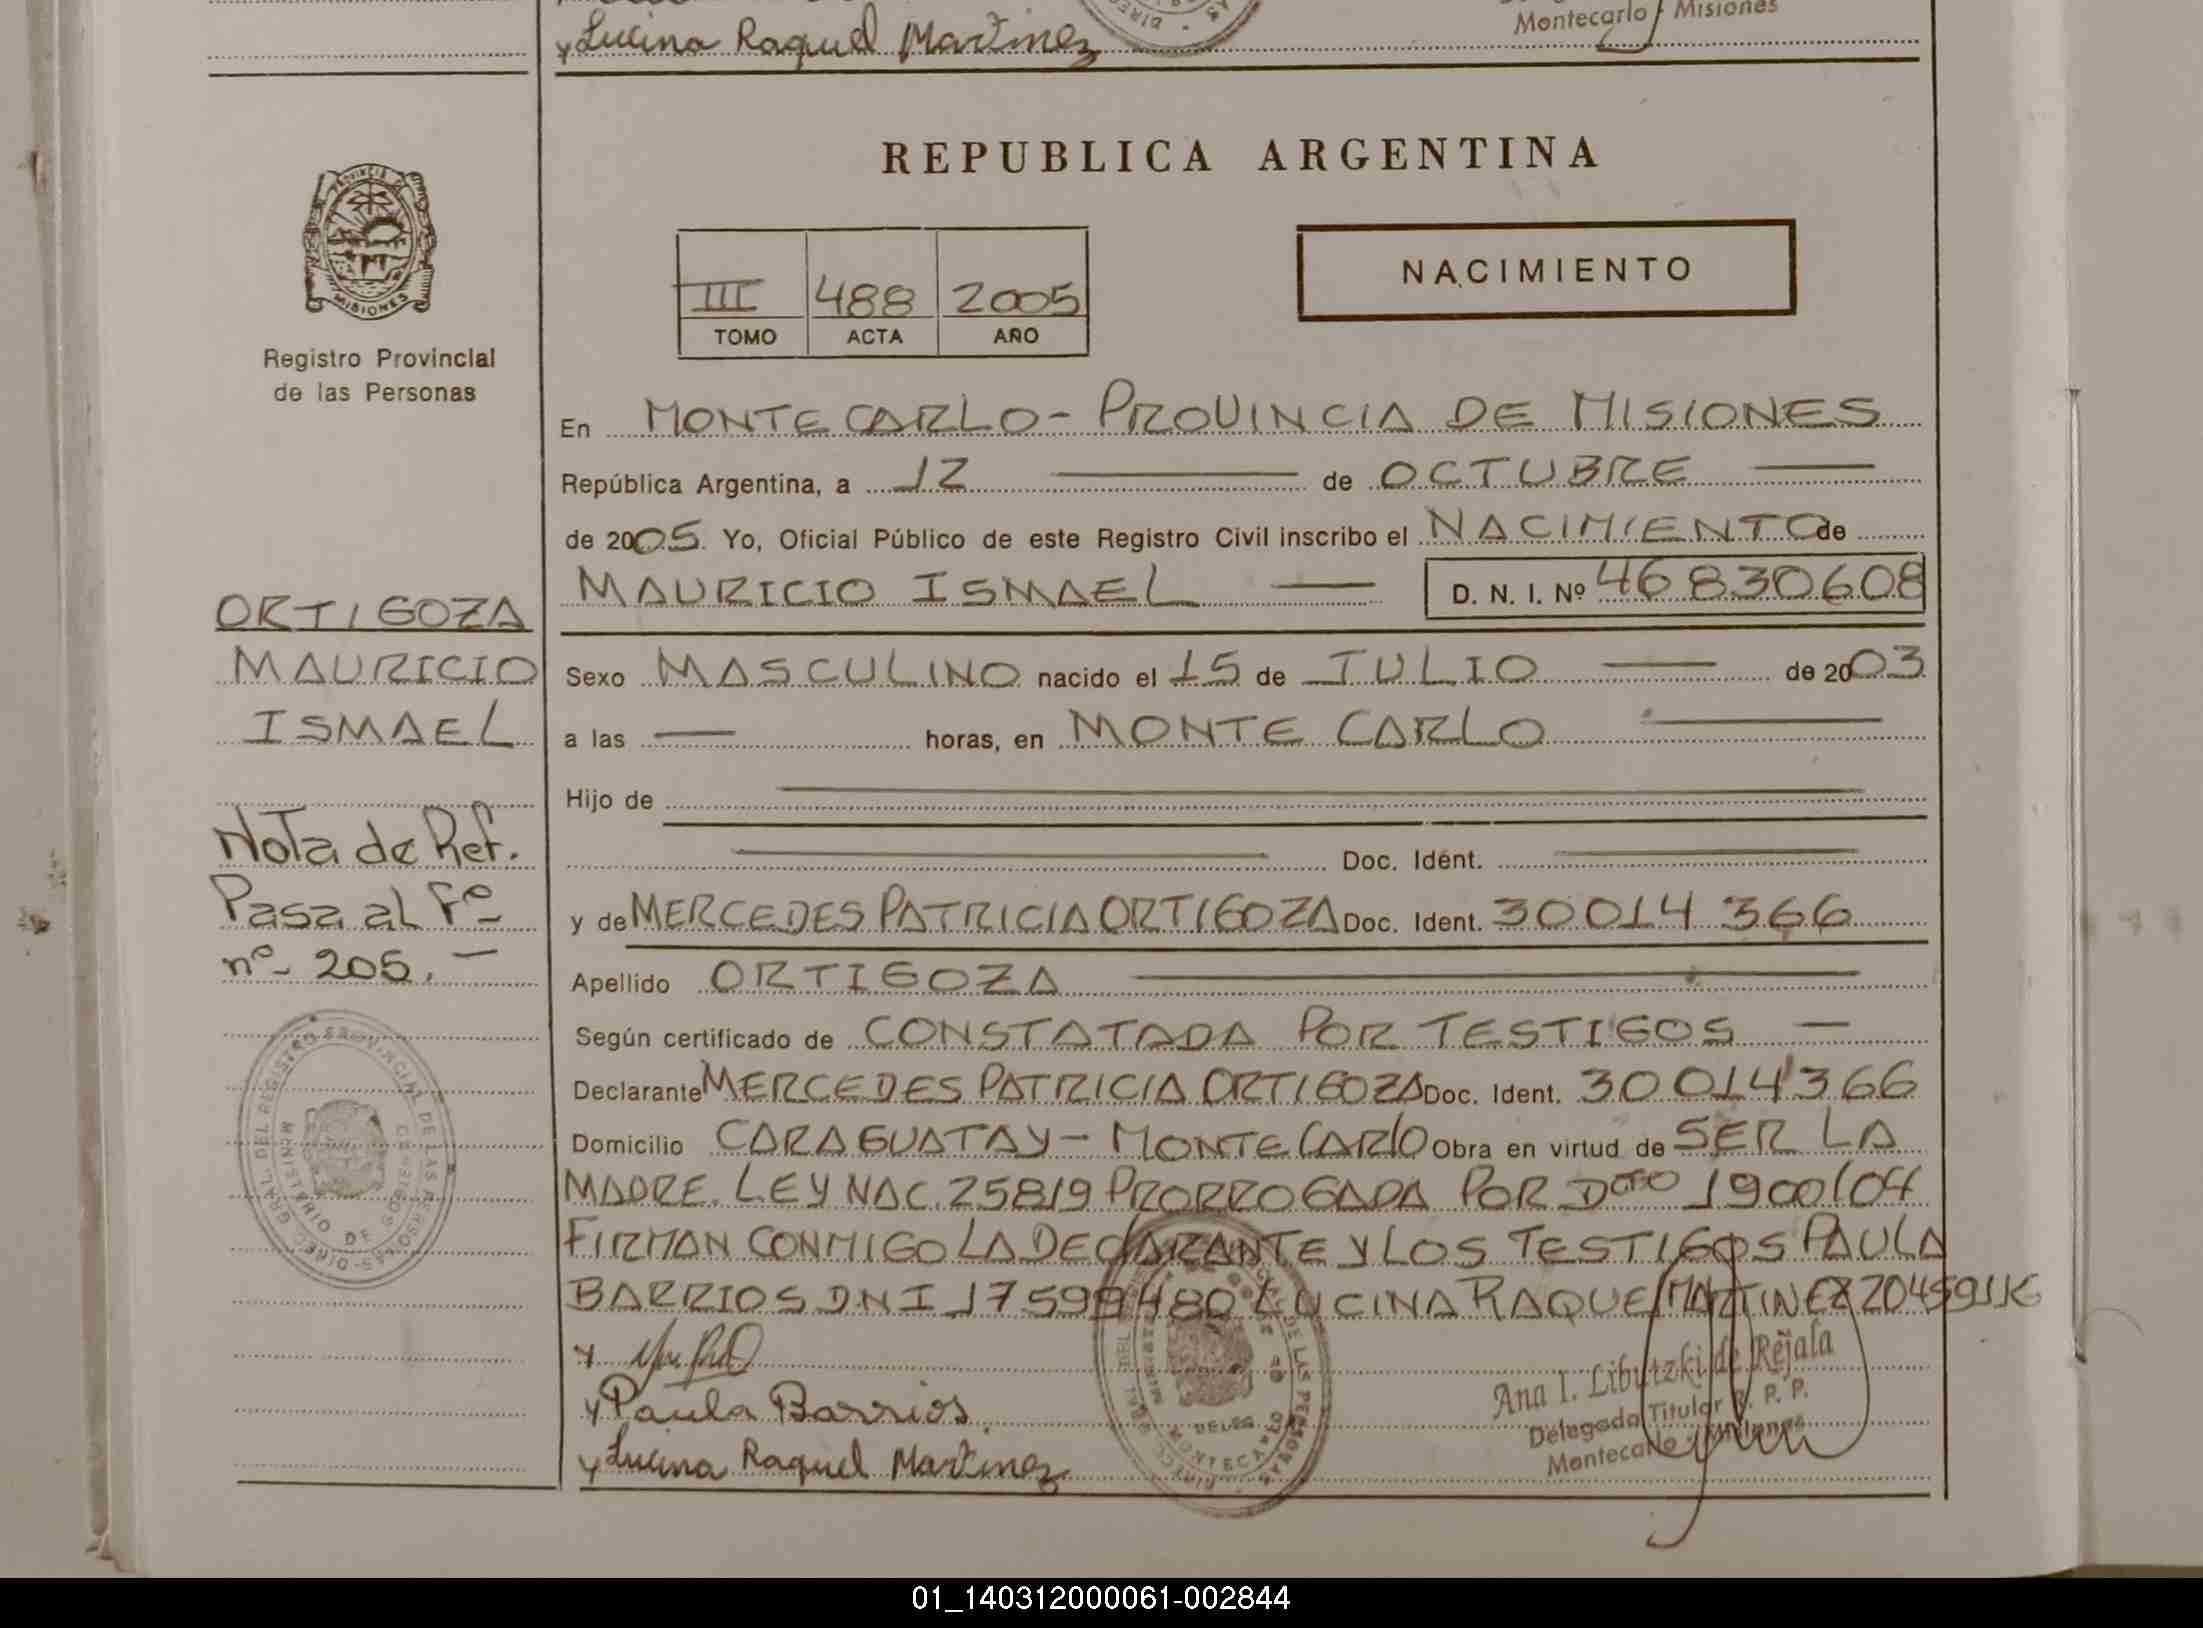 y Lucina Raquel Martinez
Montecarlo Misiones
PROVINCIA DE
MISIONES
Registro Provincial
de las Personas
ORTIGOZA
MAURICIO
ISMAEL
Nota de Ref.
Pasa al Fº
nº 205. —
REPUBLICA ARGENTINA
III 488 2005
TOMO ACTA AÑO
NACIMIENTO
En MONTECARLO - PROVINCIA DE MISIONES
República Argentina, a 12 — de OCTUBRE —
de 2005. Yo, Oficial Público de este Registro Civil inscribo el NACIMIENTO de
MAURICIO ISMAEL — D. N. I. Nº 46830608
Sexo MASCULINO nacido el 15 de JULIO — de 2003
a las — horas, en MONTE CARLO —
Hijo de —
— Doc. Ident. —
y de MERCEDES PATRICIA ORTIGOZA Doc. Ident. 30014366
Apellido ORTIGOZA —
Según certificado de CONSTATADA POR TESTIGOS —
Declarante MERCEDES PATRICIA ORTIGOZA Doc. Ident. 30014366
Domicilio CARAGUATAY - MONTECARLO Obra en virtud de SER LA
MADRE. LEY NAC. 25819 PRORROGADA POR DCTO 1900/04
FIRMAN CONMIGO LA DECLARANTE Y LOS TESTIGOS PAULA
BARRIOS DNI LUCINA RAQUEL MARTINEZ
y
y Paula Barrios
y Lucina Raquel Martinez
Ana I. Libutzki de Rejala
Delegado Titular R. P. P.
Montecarlo - Misiones
01_140312000061-002844